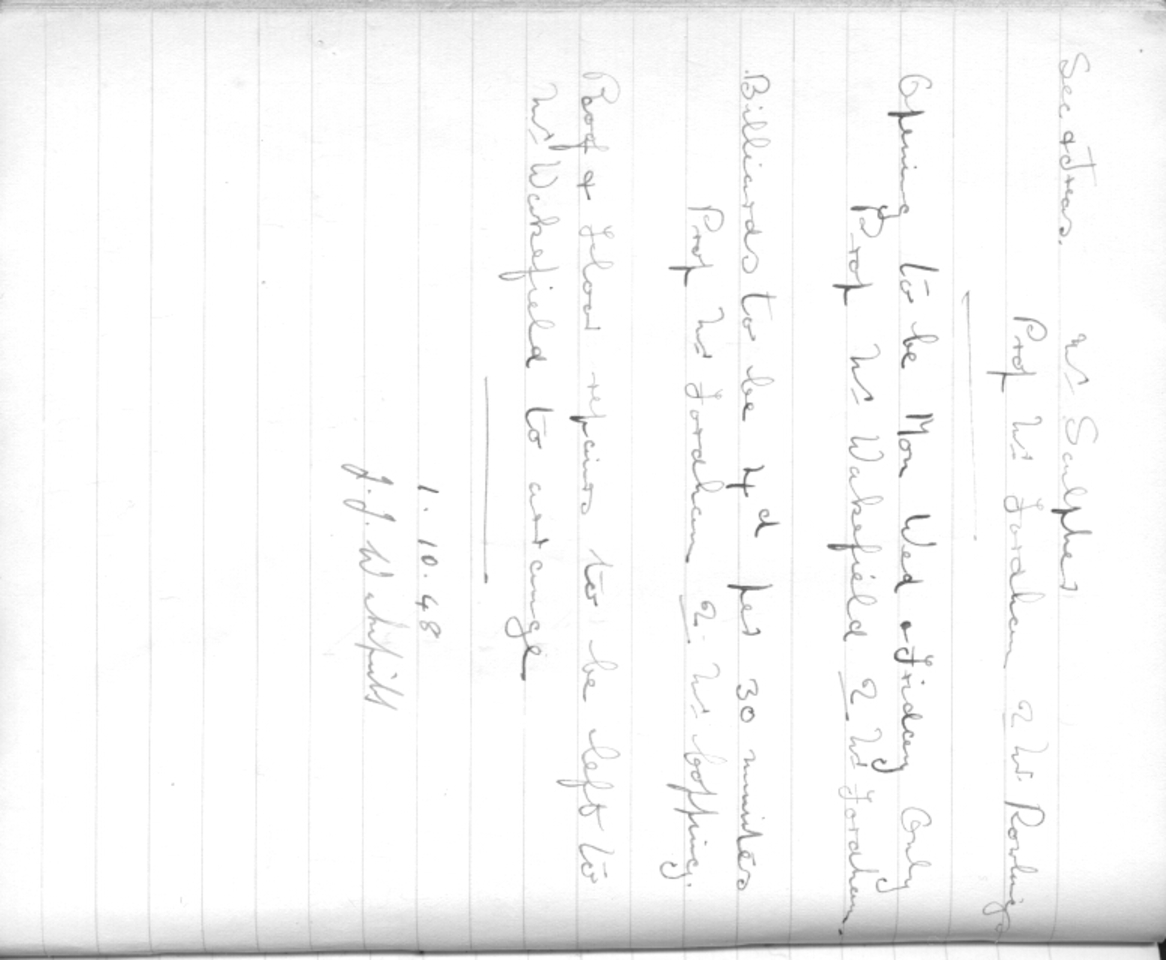 Sec & Treas. Mr Sculpher
Prop Mr Fordham 2 Mr Rowling
Opening to be Mon Wed & Friday Only
Prop Mr Wakefield 2 Mr Fordham.
Billiards to be 4d per 30 minutes
Prop Mr Fordham 2. Mr Copping.
Roof & Floor repairs to be left to
Mr Wakefield to arrange
1. 10. 48
J.J. Wakefield